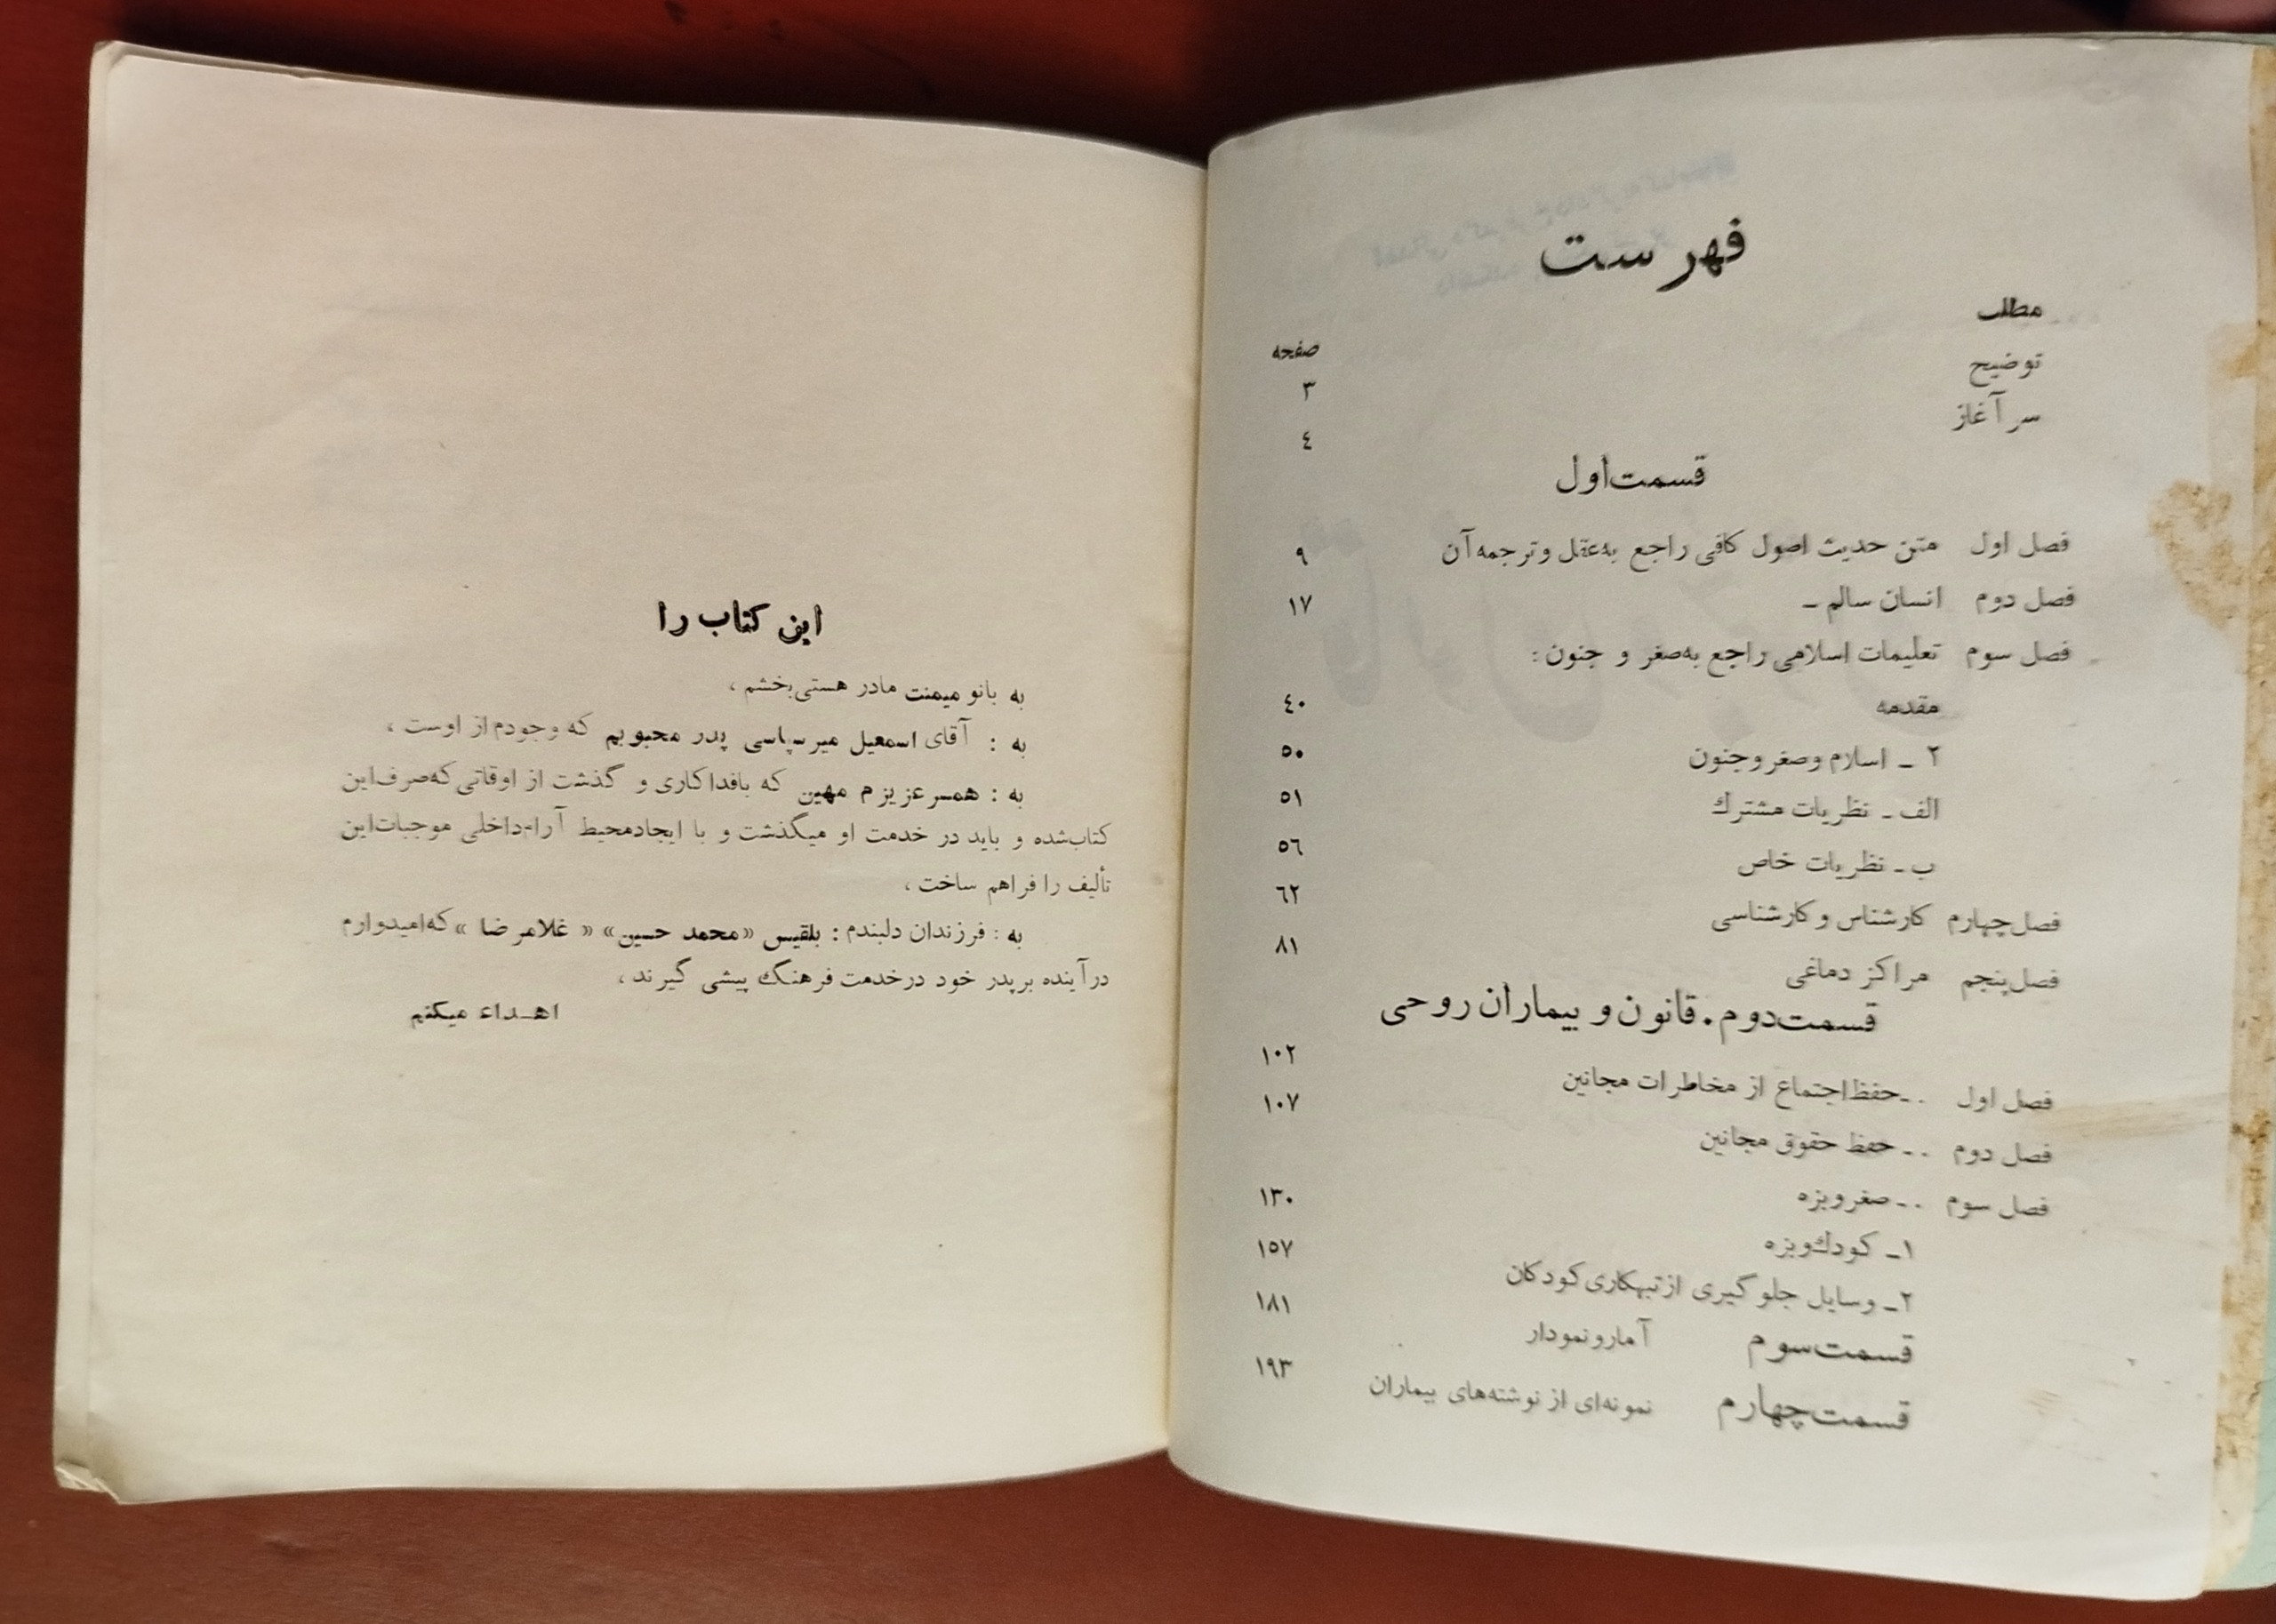 فهرست
مطلب
صفحه
توضیح
۳
سر آغاز
٤
قسمت‌اول
فصل اول متن حدیث اصول کافی راجع به‌عقل و ترجمه آن
۹
فصل دوم انسان سالم ـ
۱۷
فصل سوم تعلیمات اسلامی راجع به‌صغر و جنون :
مقدمه
٤۰
۲ ـ اسلام و صغر و جنون
۵۰
الف ـ نظریات مشترك
۵۱
ب ـ نظریات خاص
۵٦
فصل‌چهارم کارشناس و کارشناسی
٦۲
فصل‌پنجم مراکز دماغی
۸۱
قسمت‌دوم . قانون و بیماران روحی
فصل اول . ـ حفظ اجتماع از مخاطرات مجانین
۱۰۲
فصل دوم . ـ حفظ حقوق مجانین
۱۰۷
فصل سوم . ـ صغرویزه
۱ـ کودك‌ویزه
۱۳۰
۲ـ وسایل جلوگیری از تبهکاری کودکان
۱۵۷
قسمت‌سوم آمار و نمودار
۱۸۱
قسمت‌چهارم نمونه‌ای از نوشته‌های بیماران
۱۹۳
این کتاب را
به بانو میمنت مادر هستی‌بخشم ،
به : آقای اسمعیل میرسپاسی پدر محبوبم که وجودم از اوست ،
به : همسر عزیزم مهین که بافداکاری و گذشت از اوقاتی که‌صرف‌این
کتاب‌شده و باید در خدمت او میگذشت و با ایجادمحیط آرام‌داخلی موجبات‌این
تألیف را فراهم ساخت ،
به : فرزندان دلبندم : بلقیس «محمد حسین» « غلامرضا » که‌امیدوارم
در آینده بر پدر خود در خدمت فرهنگ پیشی گیرند ،
اهـداء میکنم